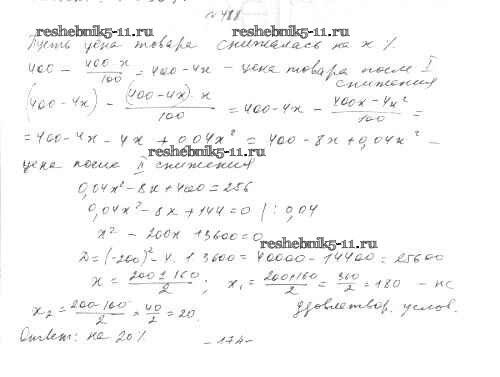 № 488
reshebnik5-11.ru reshebnik5-11.ru
Пусть цена товара снижалась на x %
400 - 400·x/100 = 400-4x - цена товара после I
снижения
(400-4x) - (400-4x)·x/100 = 400-4x - 400x-4x²/100 =
= 400-4x-4x+0,04x² = 400-8x+0,04x² -
reshebnik5-11.ru
цена после II снижения
0,04x²-8x+400=256
0,04x²-8x+144=0 |:0,04
x²-200x+3600=0
reshebnik5-11.ru
D=(-200)²-4·1·3600=40000-14400=25600
x = 200±160/2; x₁ = 200+160/2 = 360/2 = 180 - не
удовлетвор. услов.
x₂ = 200-160/2 = 40/2 = 20.
Ответ: на 20%
-174-